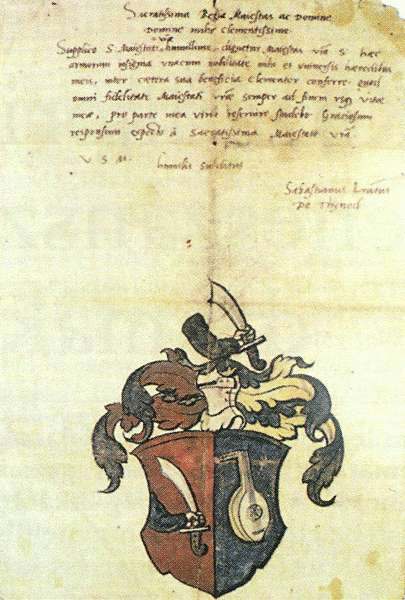 Sacratissima Regia Maiestas ac Domine
Domine mihi Clementissime
Supplico S. Maiestati humillime, dignetur Maiestas vra S. haec
armorum insignia unacum nobilitate mihi et universis haeredibus
meis, inter caetera sua beneficia Clementer conferre, quod
omni fidelitate Maiestati vrae semper ad finem usq vitae
meae, pro parte mea virili reservire studebo. Graciosum
responsum expecto à Sacratissima Maiestate vra
V. S. M.
humilis subditus
Sebastianus
De Thynod